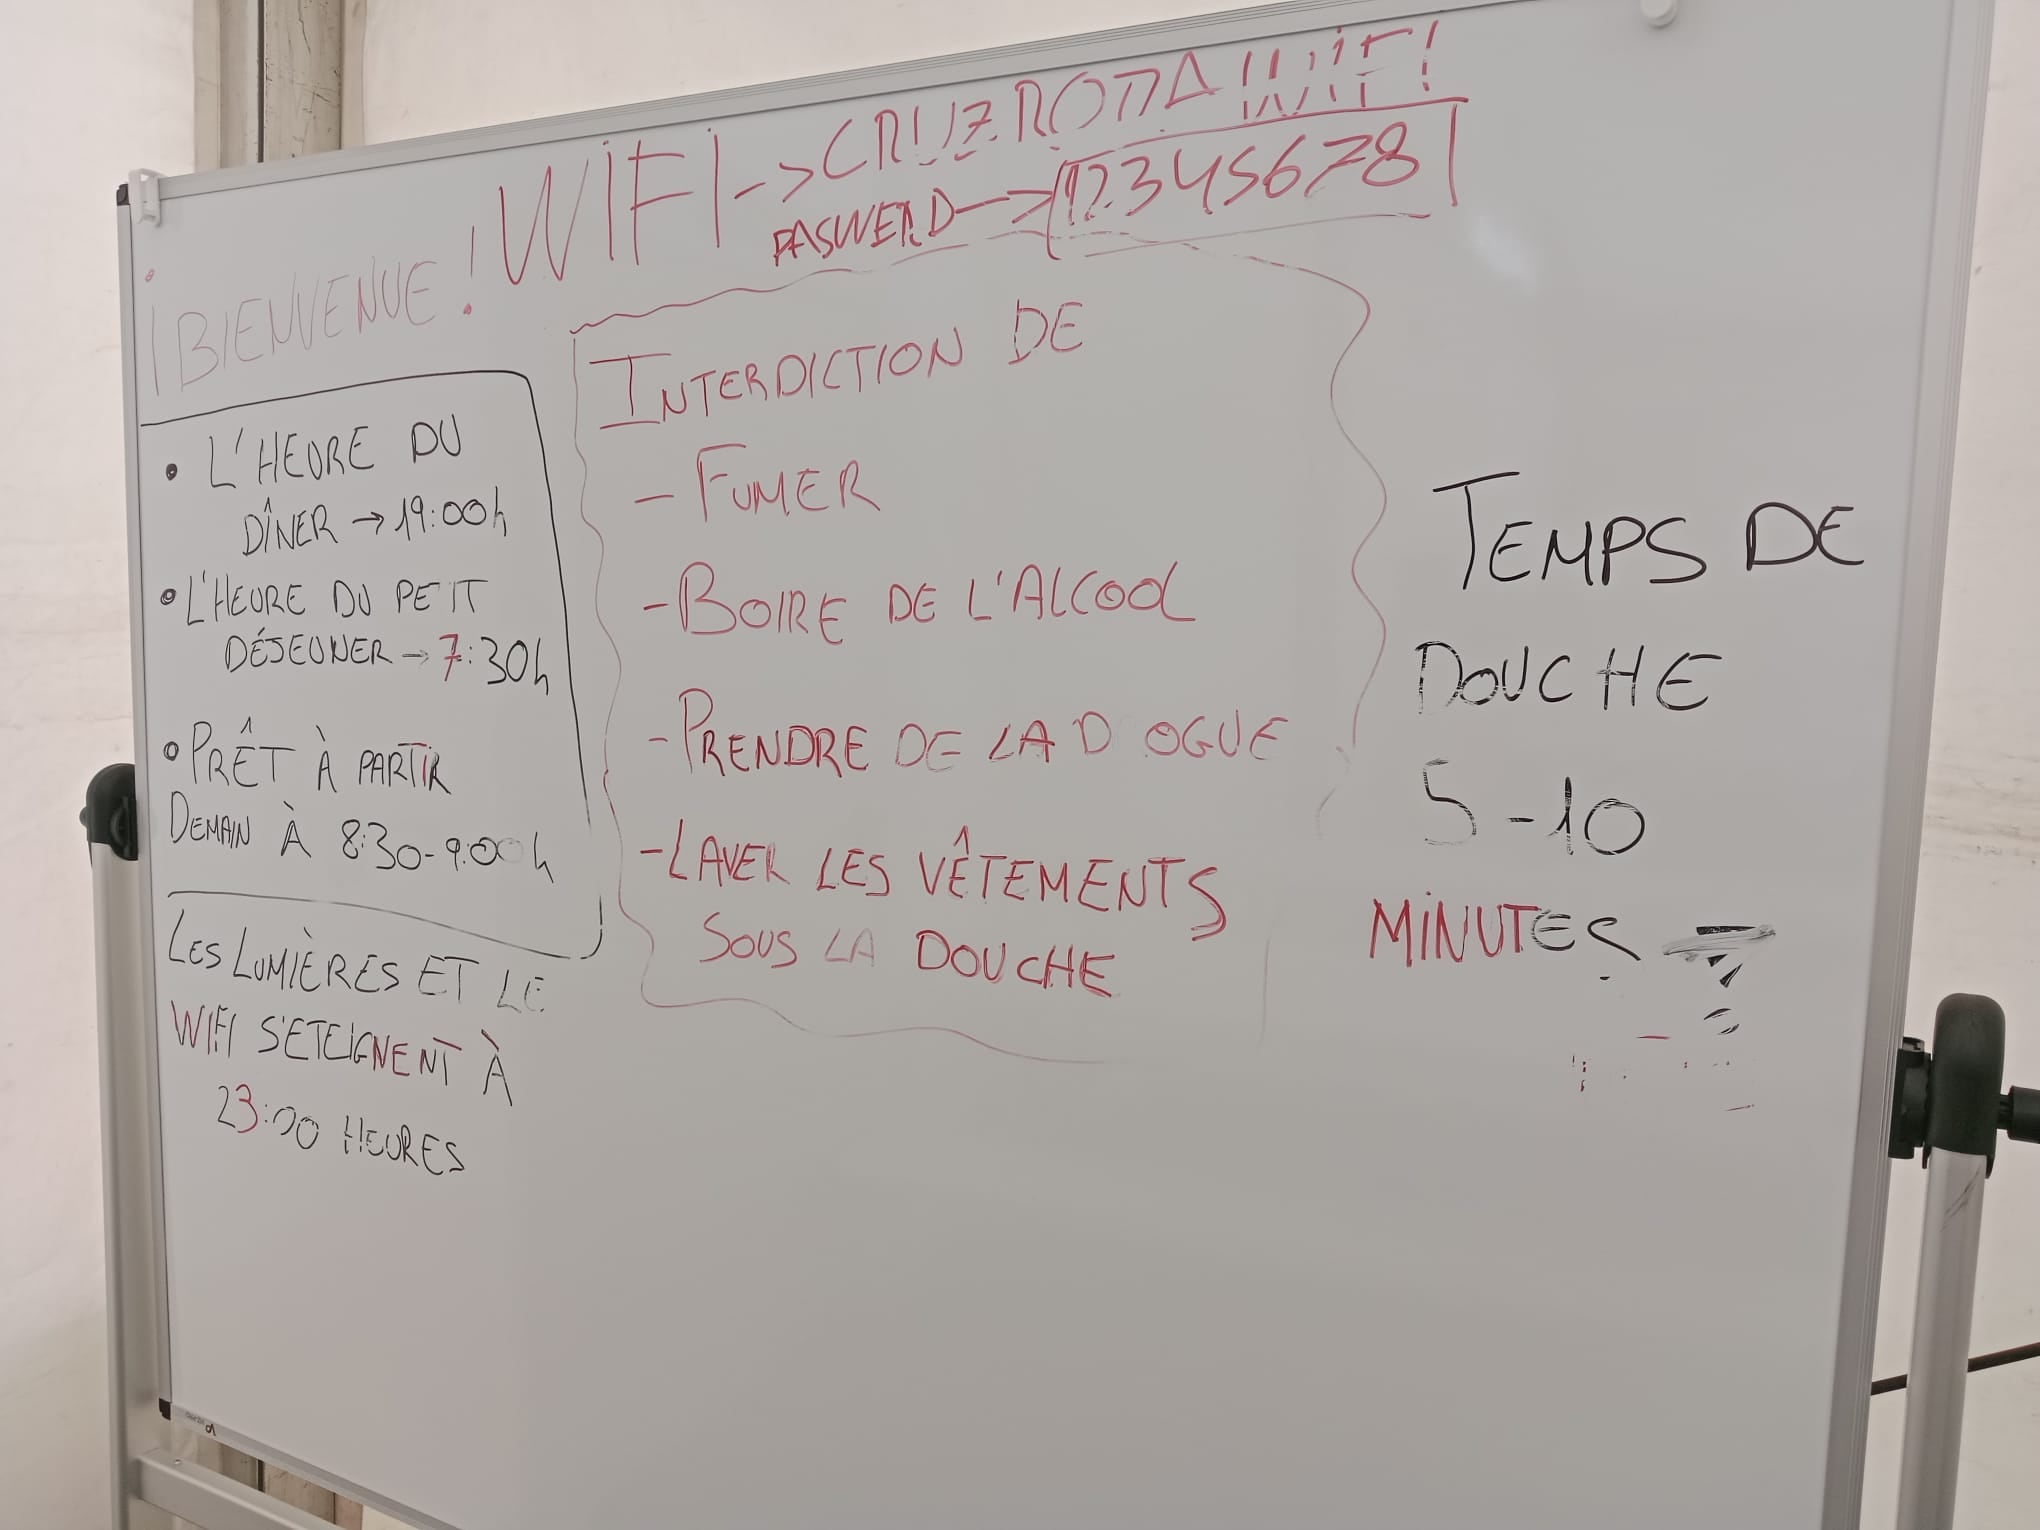 ¡BIENVENUE!
WIFI -> CRUZ ROJA
PASWERD -> 12345678
• L'HEURE DU
DÎNER → 19:00h
• L'HEURE DU PETIT
DÉJEUNER → 7:30h
• PRÊT À PARTIR
DEMAIN À 8:30-9:00h
LES LUMIÈRES ET LE
WIFI S'ETEIGNENT À
23:00 HEURES
INTERDICTION DE
- FUMER
- BOIRE DE L'ALCOOL
- PRENDRE DE LA D OGUE
- LAVER LES VÊTEMENTS
SOUS LA DOUCHE
TEMPS DE
DOUCHE
5-10
MINUTES